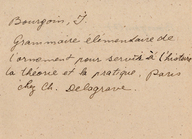 Bourgoin, J.
Grammaire élémentaire de
l'ornement pour servir à l'histoire
la théorie et la pratique. Paris
chez Ch. Delagrave.